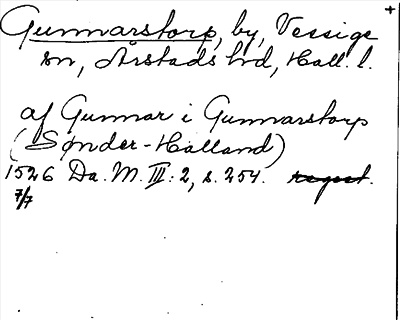 +
Gunnarstorp, by, Vessige
sn, Årstads hd, Hall. l.
af Gunnar i Gunnarstorp
(Sønder-Halland)
1526 Da. M. III: 2, s. 254. regest.
7/7